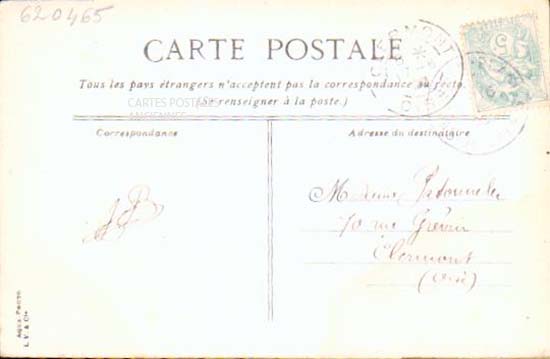 620465
CARTE POSTALE
Tous les pays étrangers n'acceptent pas la correspondance au recto.
(Se renseigner à la poste.)
CARTES POSTALES
ANCIENNES
Correspondance
Adresse du destinataire
CLERMONT
Madame
70 rue Grévin
Clermont
(Oise)
L. V. & Cie